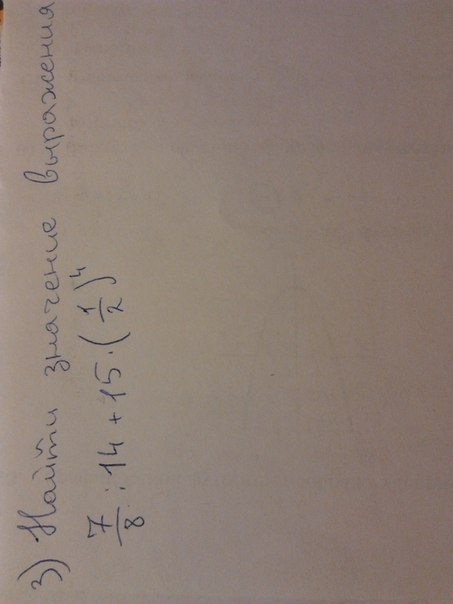 3) Найти значение выражения
7/8 : 14 + 15 · (1/2)^4